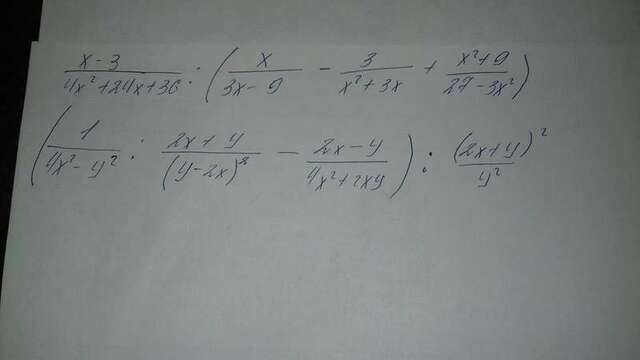 (x-3)/(4x²+24x+36) : (x/(3x-9) - 3/(x²+3x) + (x²+9)/(27-3x²))
(1/(4x²-y²) : (2x+y)/(y-2x)² - (2x-y)/(4x²+2xy)) : (2x+y)²/y²